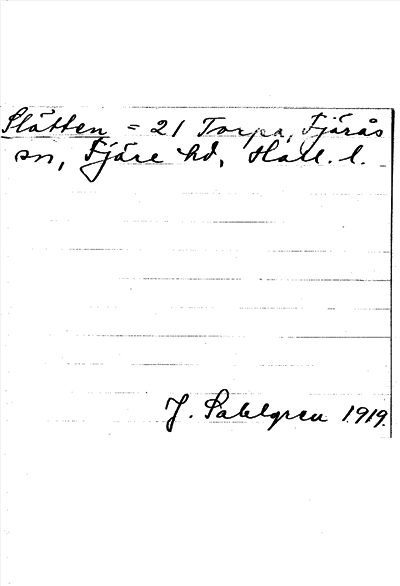 Slätten = 21 Torpa, Fjärås
sn, Fjäre hd, Hall. l.
J. Sahlgren 1919.